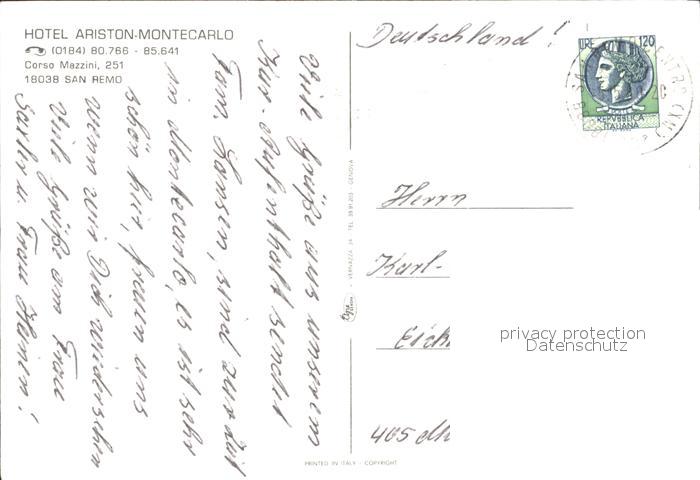 HOTEL ARISTON-MONTECARLO
(0184) 80.766 - 85.641
Corso Mazzini, 251
18038 SAN REMO
Viele Grüße aus unserem
Kur-Aufenthalt sendet
Fam. Jansen, sind zur Zeit
in Montecarlo, es ist sehr
schön hier, freuen uns
wenn wir Dich wiedersehen
Viele Grüße an Frau
u. Frau
Deutschland!
LIRE 120
REPVBBLICA
ITALIANA
Herrn
Karl-
Eick
405 Mö
privacy protection
Datenschutz
VERNAZZA 34 - TEL. 39.91.203 - GENOVA
PRINTED IN ITALY - COPYRIGHT